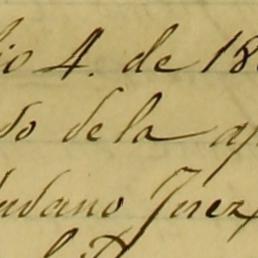 io 4. de 18
do dela ap
dadano Jerez